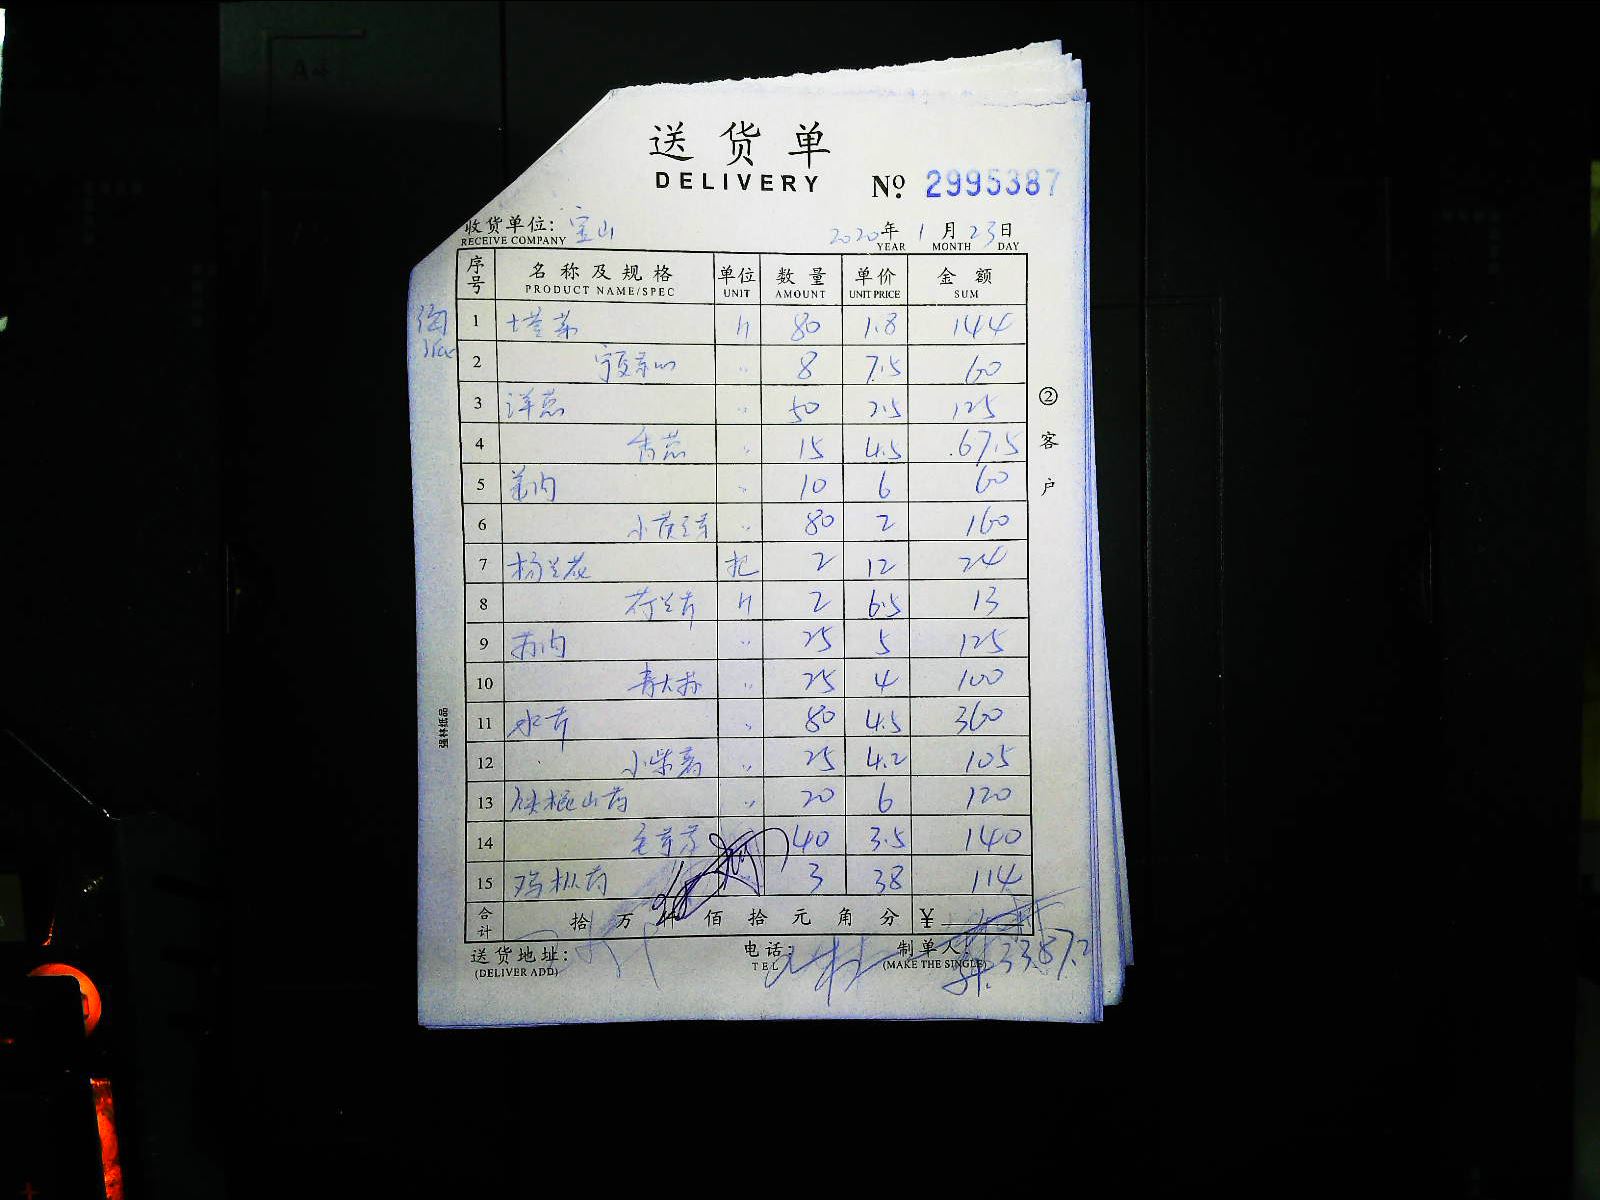 送货单
DELIVERY
№ 2995387
收货单位: 宝山 2020年 1月 23日
RECEIVE COMPANY YEAR MONTH DAY
序号 名称及规格 单位 数量 单价 金额
PRODUCT NAME/SPEC UNIT AMOUNT UNIT PRICE SUM
1 塔菜 斤 80 1.8 144
2 宁夏菜心 〃 8 7.5 60
3 洋葱 〃 50 2.5 125
4 香葱 〃 15 4.5 67.5
5 姜肉 〃 10 6 60
6 小黄豆芽 〃 80 2 160
7 杨兰花 把 2 12 24
8 荷兰芹 斤 2 6.5 13
9 蒜肉 〃 25 5 125
10 青大蒜 〃 25 4 100
11 水芹 〃 80 4.5 360
12 小柴胡 〃 25 4.2 105
13 铁棍山药 〃 20 6 120
14 毛芋艿 40 3.5 140
15 鸡枞菌 3 38 114
合计 拾 万 仟 佰 拾 元 角 分 ¥
送货地址: 电话: 制单人:
(DELIVER ADD) TEL (MAKE THE SINGLE)
3387.2
②客户
强林纸品